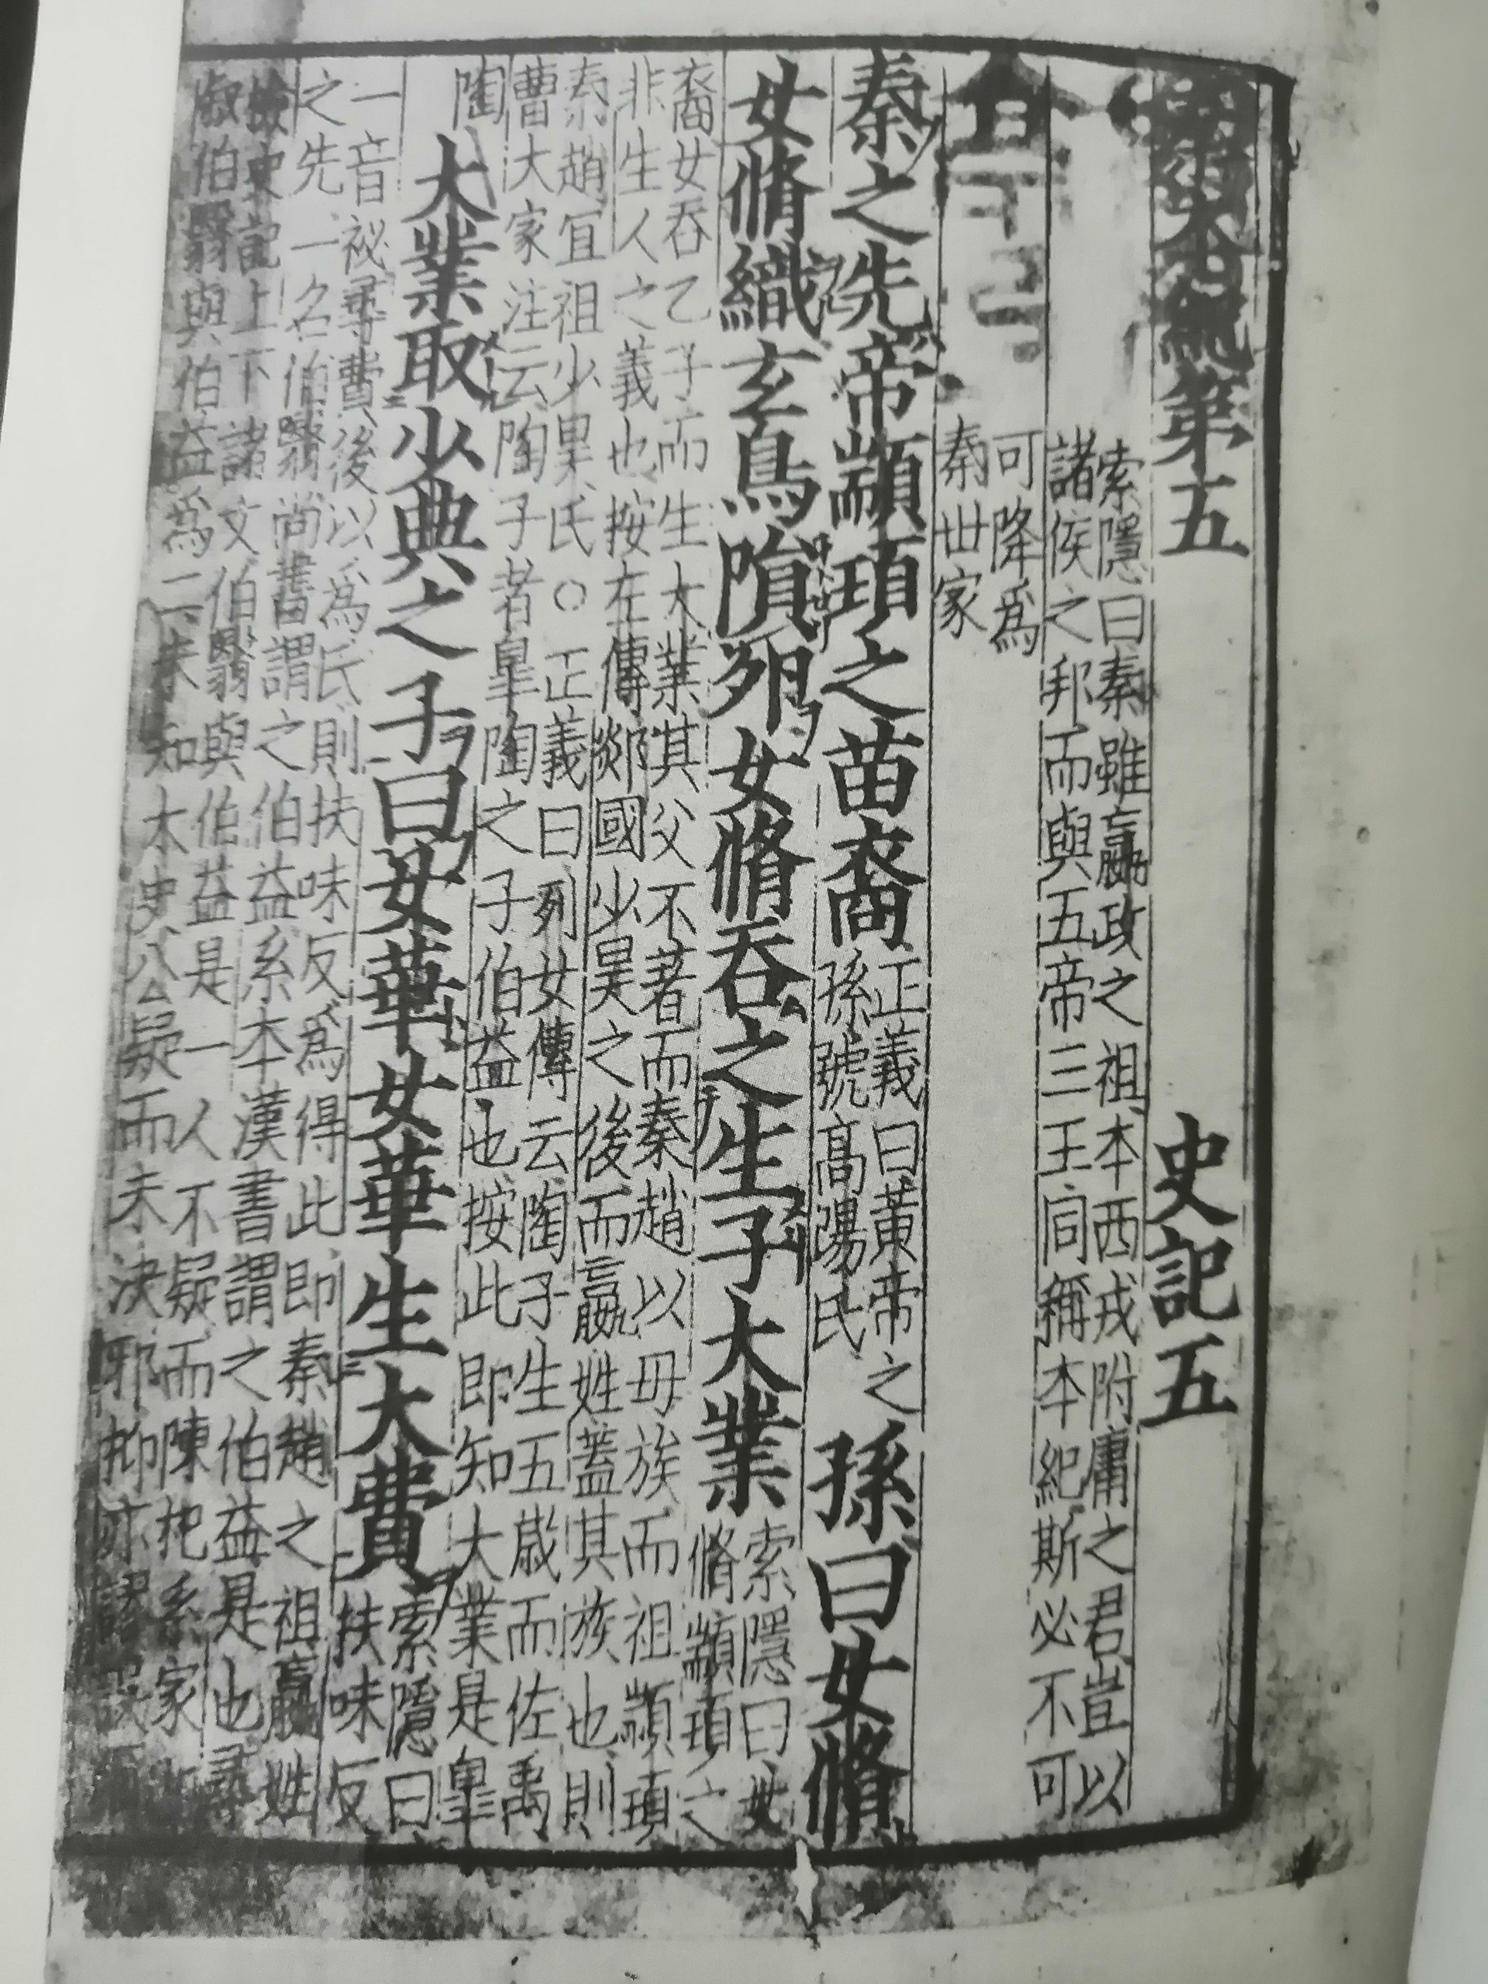 秦本紀第五　史記五
索隱曰秦雖嬴政之祖本西戎附庸之君豈以
諸侯之邦而與五帝三王同稱本紀斯必不可
可降爲
秦世家
秦之先帝顓頊之苗裔
正義曰黃帝之
孫號高陽氏
孫曰女脩
女脩織玄鳥隕卵女脩吞之生子大業
索隱曰女
脩顓頊之
裔女吞乙子而生大業其父不著而秦趙以母族而祖顓頊
非生人之義也按左傳郯國少昊之後而嬴姓蓋其族也則
秦趙宜祖少昊氏○正義曰列女傳云陶子生五歲而佐禹
曹大家注云陶子者皐陶之子伯益也按此即知大業是皐
陶
大業取少典之子曰女華女華生大費
索隱曰
扶味反
一音祕尋費後以爲氏則扶味反爲得此即秦趙之祖嬴姓
之先一名伯翳尚書謂之伯益系本漢書謂之伯益是也尋
檢史記上下諸文伯翳與伯益是一人不疑而陳杞系家
叙伯翳與伯益爲二未知太史公疑而未決邪抑亦謬誤